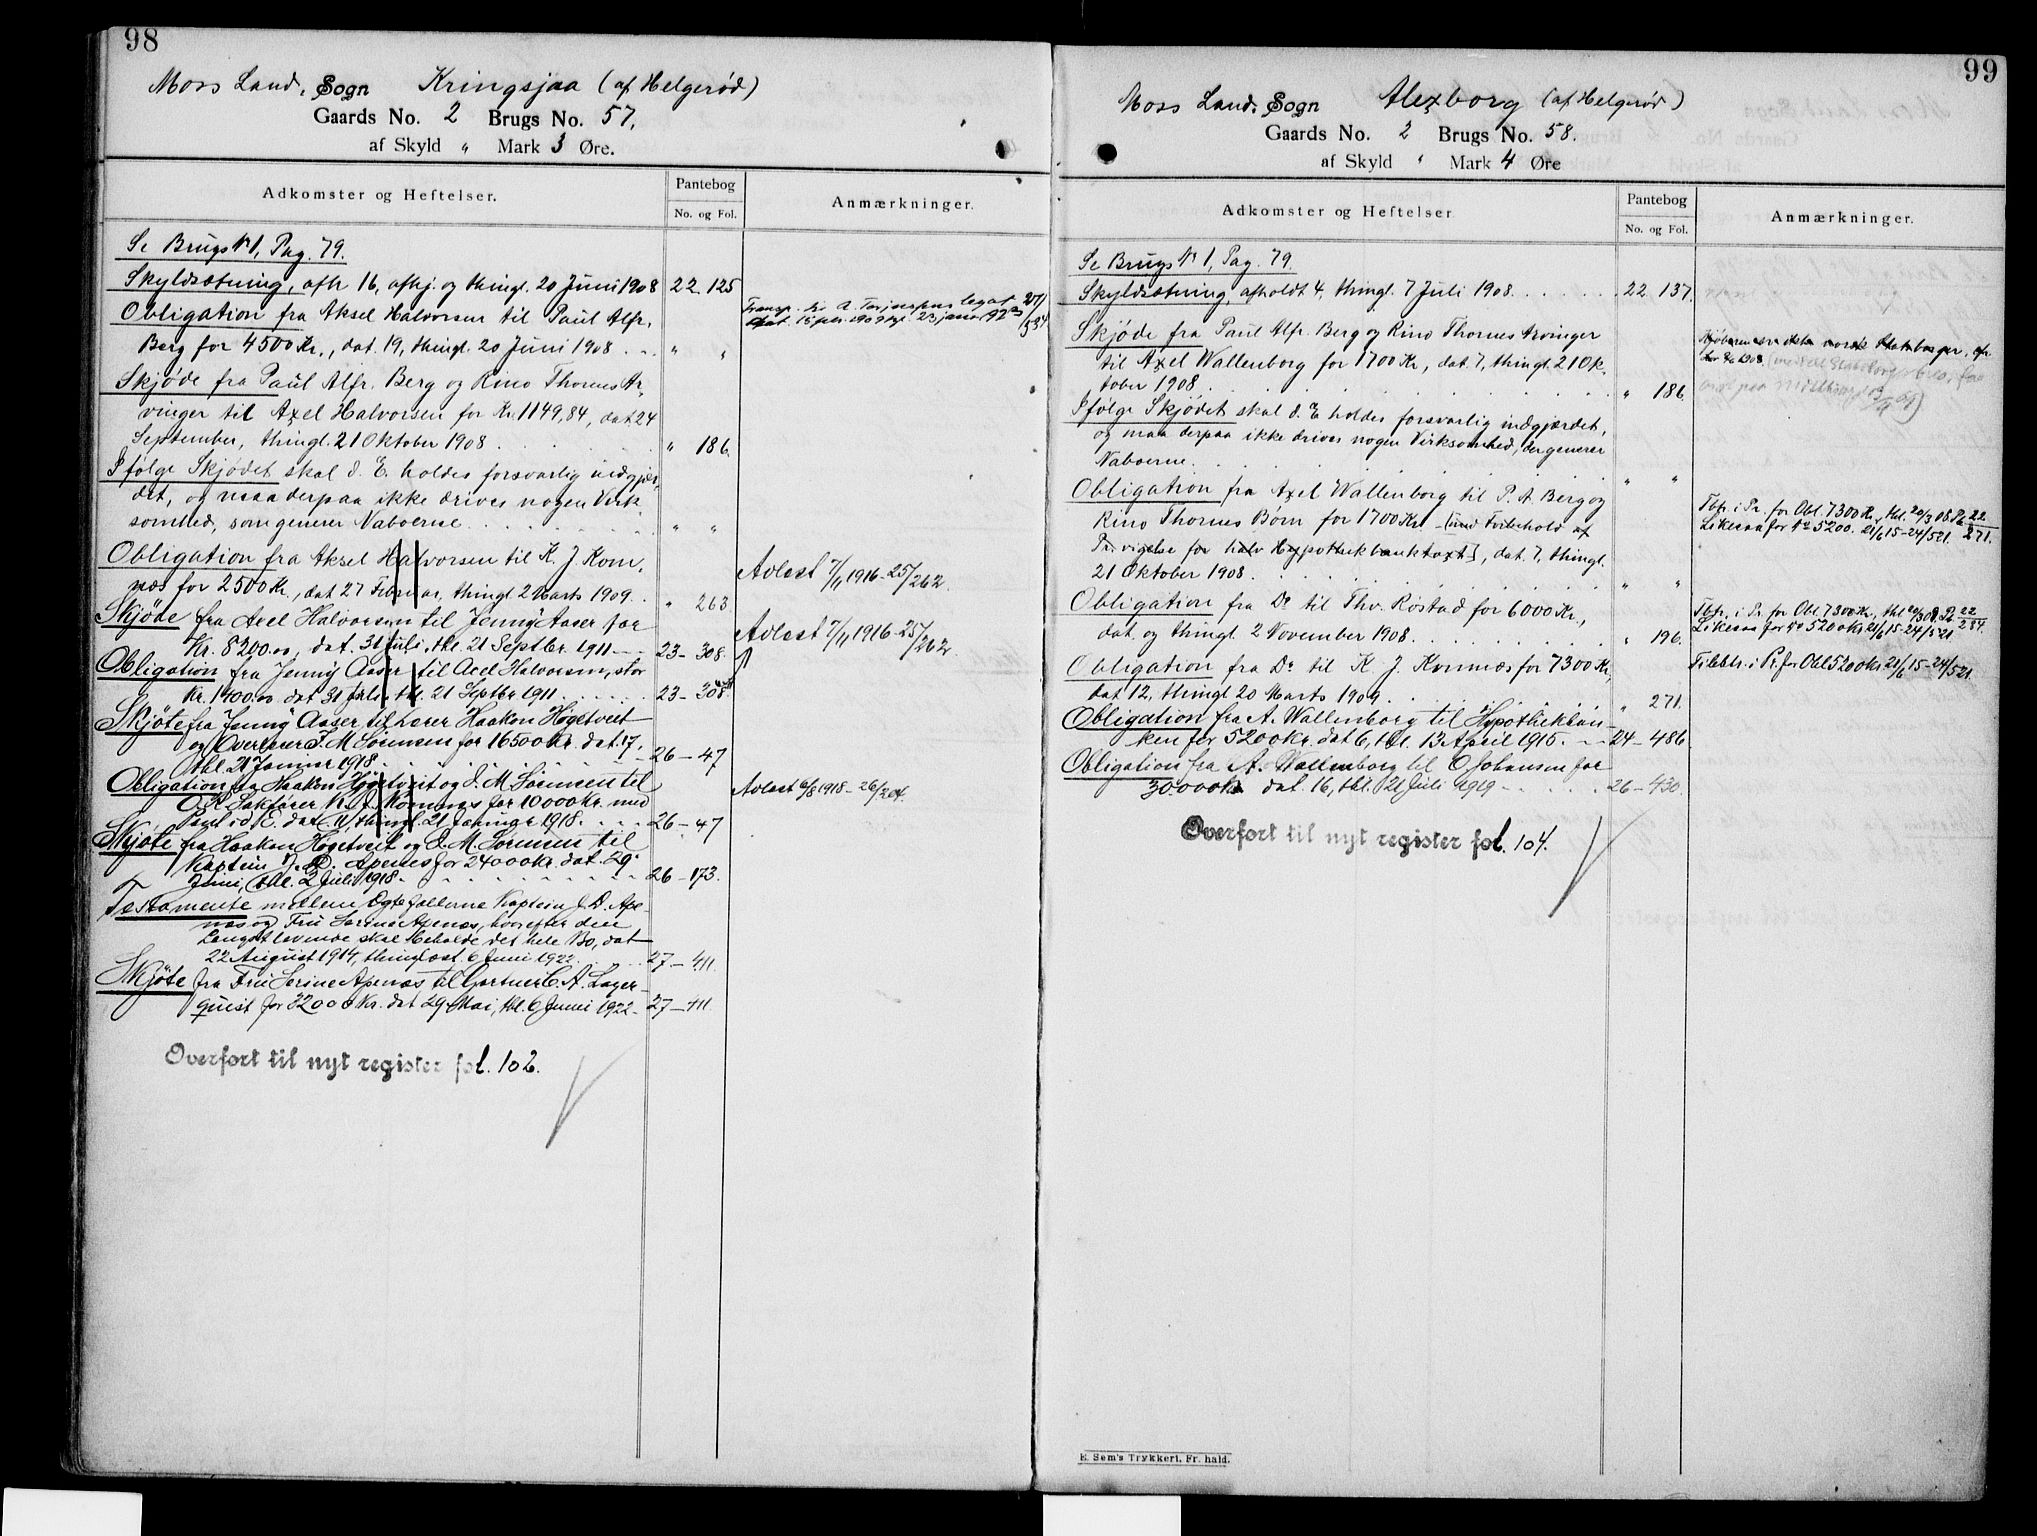 98
Moss Land. Sogn Kringsjaa (af Helgerød)
Gaards No. 2 Brugs No. 57.
af Skyld " Mark 3 Øre.
Adkomster og Heftelser.
Pantebog
No. og Fol.
Anmærkninger.
Se Brugs № 1, Pag. 79.
Skyldsætning, afh. 16, afhj. og thingl. 20 Juni 1908 22. 125
Obligation fra Aksel Halvorsen til Paul Alfr.
Berg for 4500 Kr., dat. 19, thingl. 20 Juni 1908 . . " "
Transp. til A. Torjussens legat 27/534
dat. 15 1909 tgl. 23 januar 1923
Skjøde fra Paul Alfr. Berg og Rino Thornes Ar-
vinger til Axel Halvorsen for Kr. 1149,84, dat. 24
September, thingl. 21 Oktober 1908 . . . . " 186.
Ifølge Skjødet skal d. E. holdes forsvarlig indgjær-
det, og maa derpaa ikke drives nogen Virk-
somhed, som generer Naboerne . . . . . " "
Obligation fra Aksel Halvorsen til K. J. Kom-
næs for 2500 Kr., dat. 27 Februar, thingl. 2 Marts 1909 . . " 263.
Avlæst 7/11 1916 - 25/262.
Skjøde fra Axel Halvorsen til Jenny Aaser for
Kr. 8200.00, dat. 31 Juli, thl. 21 Septbr. 1911 - - - 23 - 308.
Avlæst 7/11 1916 - 25/262.
Obligation fra Jenny Aaser til Axel Halvorsen, stor
Kr. 1400.00 dat 31 Juli, thl. 21 Septbr 1911 . . . . . 23 - 308.
Skjøte fra Jenny Aaser til Lærer Haakon Høgetveit
og Overlærer I. M. Sørensen for 16500 Kr. dat. 17,
thl. 21 Januar 1918 . . . . . . 26 - 47
Obligation fra Haakon Høgetveit og I. M. Sørensen til
O. R. Sakfører K. J. Komnæs for 10000 Kr. med
Pant i d. E. dat. 11, thingl. 21 Januar 1918 . . . . 26 - 47
Avlæst 6/8 1918 - 26/204.
Skjøte fra Haakon Høgetveit og I. M. Sørensen til
Kaptein J. D. Apenes for 24000 Kr. dat. 29
Juni, thl. 2 Juli 1918 . . . . . . . 26 - 173.
Testamente mellem Egtefællerne Kaptein J. D. Ape-
næs og Fru Sorine Apenæs, hvorefter den
Længstlevende skal beholde det hele Bo, dat
22 August 1914, thinglæst 6 Juni 1922 . . . . 27 - 411.
Skjøte fra Fru Sorine Apenæs til Gartner C. A. Lager-
quist for 22000 Kr. dat 29 Mai, thl. 6 Juni 1922 - 27 - 411.
Overført til nyt register fol. 102.
99
Moss Land. Sogn Alexborg (af Helgerød)
Gaards No. 2 Brugs No. 58.
af Skyld " Mark 4 Øre
Adkomster og Heftelser
Pantebog
No. og Fol.
Anmærkninger.
Se Brugs № 1, Pag. 79.
Skyldsætning, afholdt 4, thingl. 7 Juli 1908 . . . . . . 22 137.
Skjøde fra Paul Alfr. Berg og Rino Thornes Arvinger
til Axel Wallenborg for 1700 Kr, dat. 7, thingl. 21 Ok-
tober 1908 . . . . . . . " 186.
Kjøberen norsk Statsborger,
1908
Ifølge Skjødet skal d. E. holdes forsvarlig indgjærdet,
og maa derpaa ikke drives nogen Virksomhed, der generer
Naboerne . . . . . . . " "
Obligation fra Axel Wallenborg til P. A. Berg og
Rino Thornes Børn for 1700 Kr. - [med Forbehold af
Pr. vigelse for halv Hypothekbankstaxt], dat. 7, thingl.
21 Oktober 1908 . . . . . . . " "
Tbtr. i Pr. for Obl. 7300 Kr, thl. 20/3 08. Pb. 22/271.
Likesaa for Kr 5200. 21/6 15 - 24/521.
Obligation fra Do til Thv. Røstad for 6000 Kr.,
dat. og thingl. 2 November 1908 . . . . . . " 196.
Tbtr. i Pr. for Obl. 7300 Kr, thl 20/3 08. Pb. 22/284.
Likesaa for Kr 5200 Kr 21/6 15 - 24/521
Obligation fra Do til K. J. Komnæs for 7300 Kr,
dat 12, thingl 20 Marts 1909 . . . . . . " 271.
Tilbtr. i Pr. for Obl 5200 Kr 21/6 15 - 24/521.
Obligation fra A. Wallenborg til Hypothekban-
ken for 5200 Kr. dat 6, thl. 13 April 1915 . - - 24 - 486.
Obligation fra A. Wallenborg til O Johansen for
30000 Kr dat. 16, thl. 21 Juli 1919 - . . . . 26 - 430.
Overført til nyt register fol. 104.
E. Sem's Trykkeri, Fr. hald.